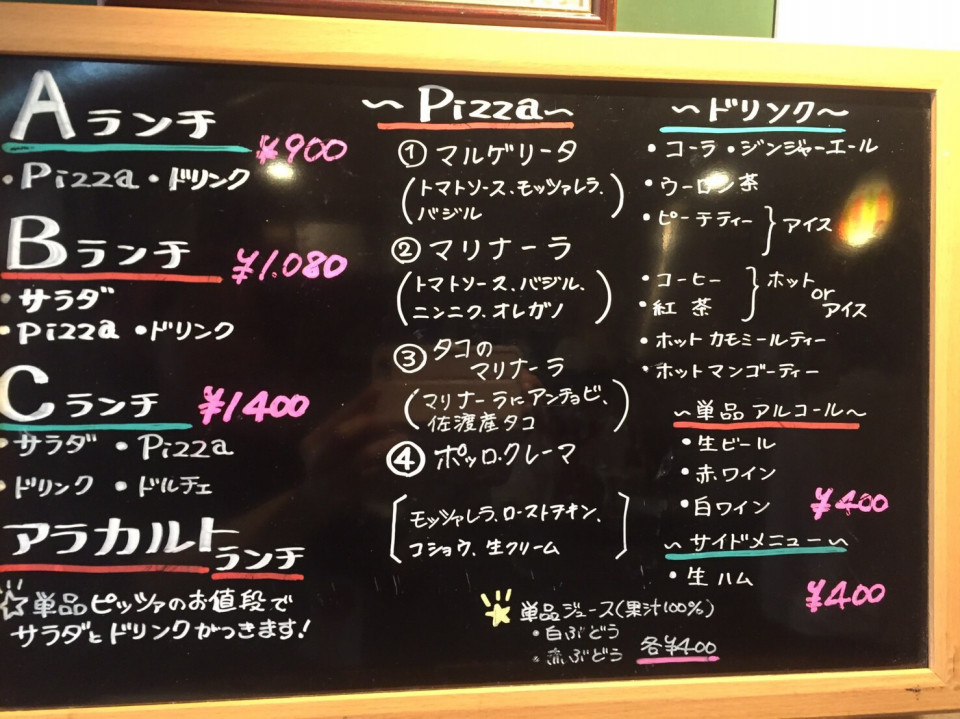 Aランチ ¥900
・Pizza・ドリンク
Bランチ ¥1.080
・サラダ
・Pizza ・ドリンク
Cランチ ¥1400
・サラダ ・Pizza
・ドリンク ・ドルチェ
アラカルトランチ
☆単品ピッツァのお値段で
サラダとドリンクがつきます!
~Pizza~
①マルゲリータ
(トマトソース、モッツァレラ、
バジル)
②マリナーラ
(トマトソース、バジル、
ニンニク、オレガノ)
③タコの
マリナーラ
(マリナーラにアンチョビ、
佐渡産タコ)
④ポッロ.クレーマ
[モッツァレラ、ローストチキン、
コショウ、生クリーム]
~ドリンク~
・コーラ ・ジンジャーエール
・ウーロン茶
・ピーチティー }アイス
・コーヒー
・紅茶 }ホットorアイス
・ホットカモミールティー
・ホットマンゴーティー
~単品アルコール~
・生ビール
・赤ワイン
・白ワイン ¥400
~サイドメニュー~
・生ハム ¥400
★単品ジュース(果汁100%)
・白ぶどう
・赤ぶどう 各¥400